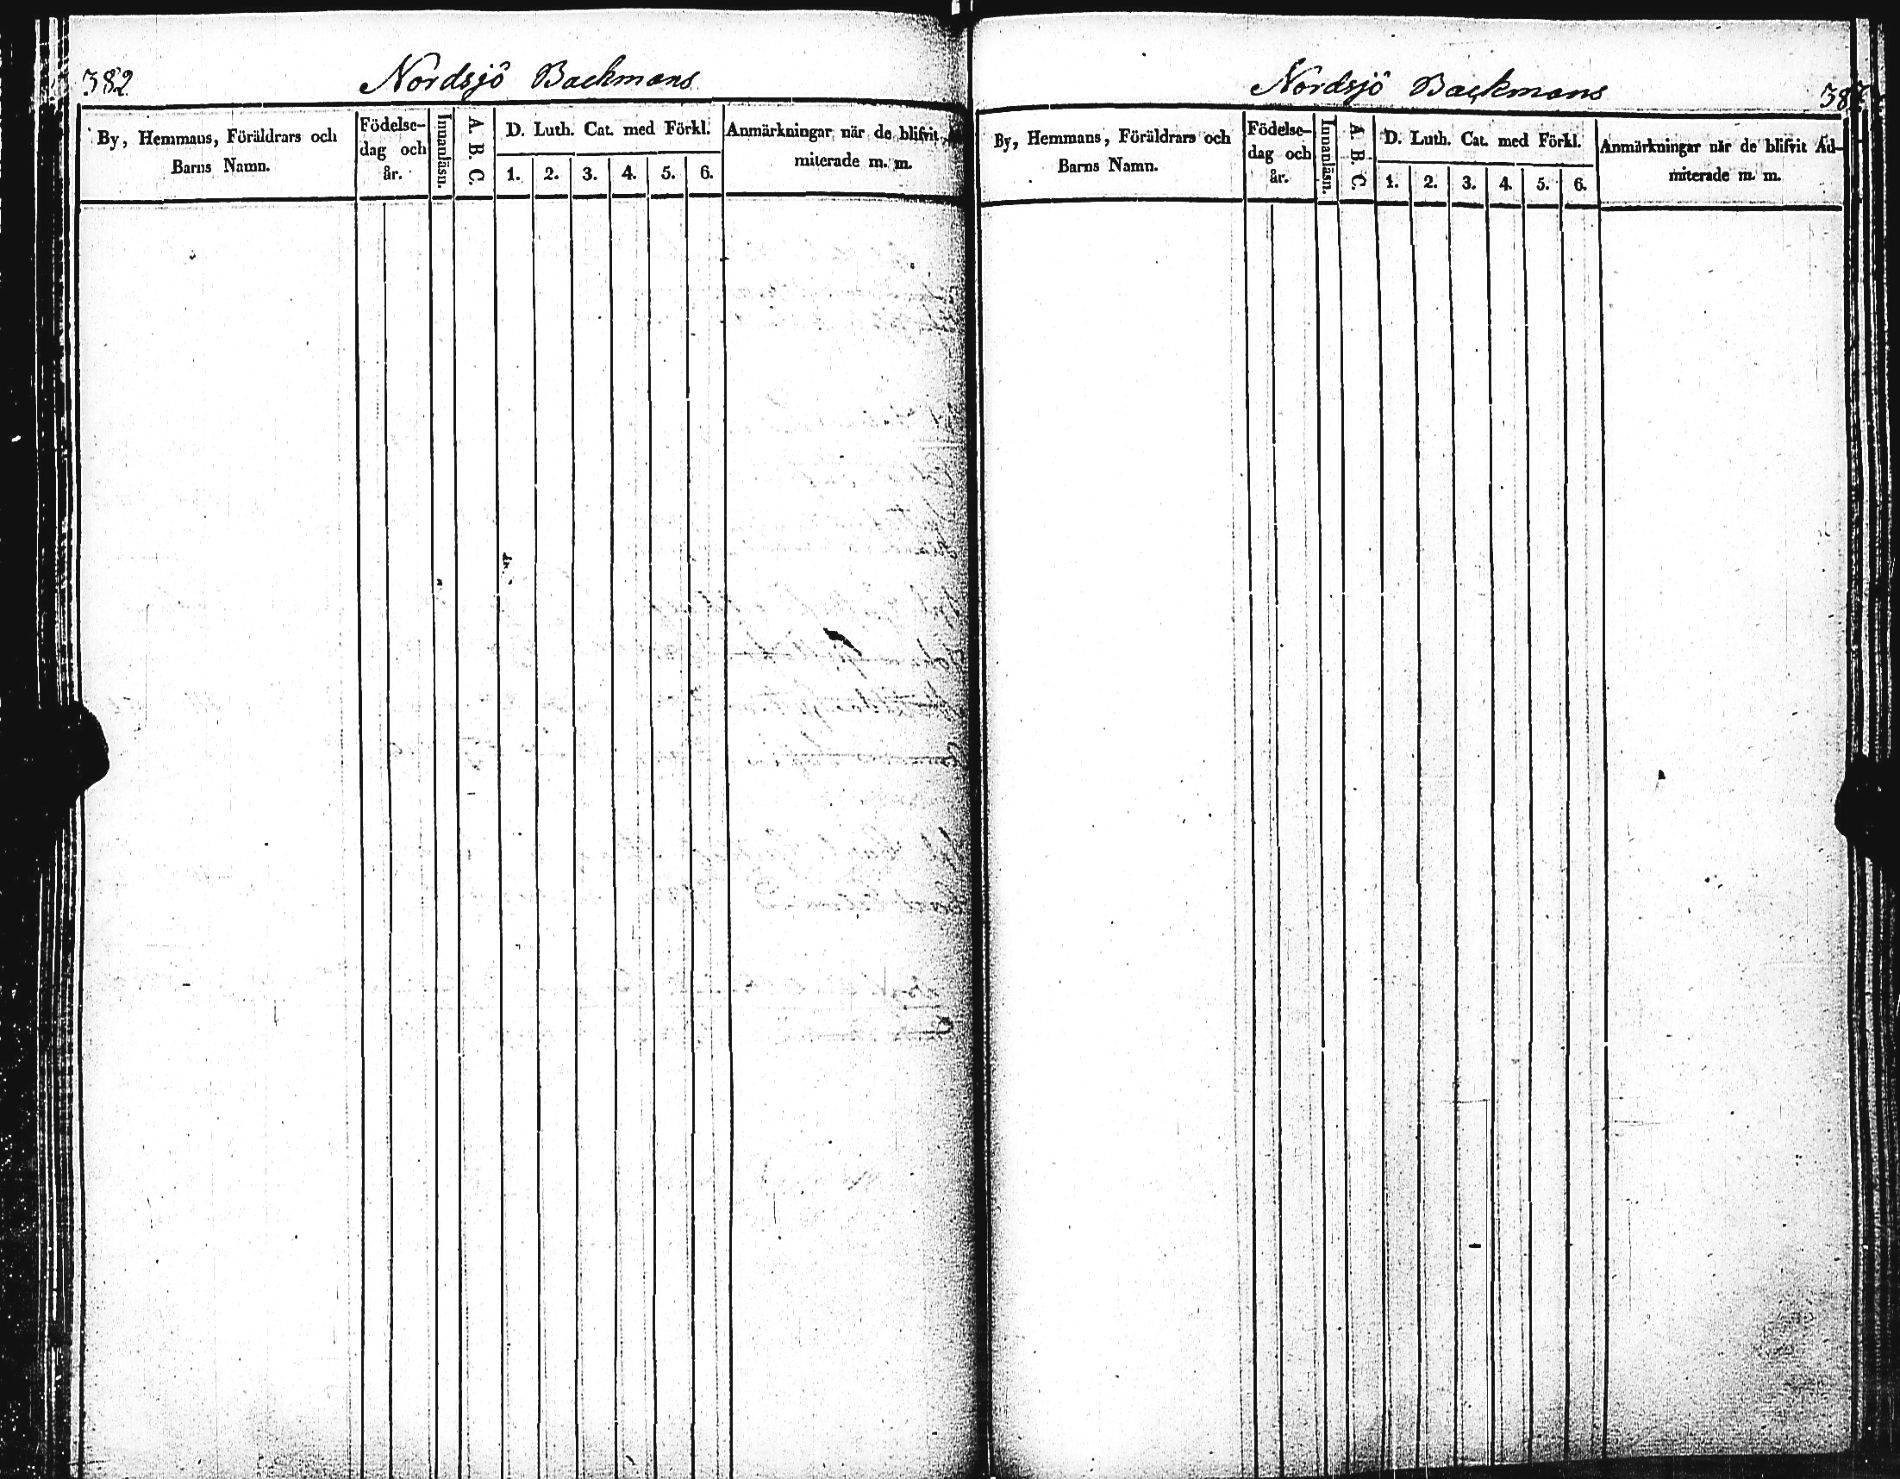 382 Nordsjö Backmans
By, Hemmans, Föräldrars och
Barns Namn.
Födelse-
dag och
år.
Innanläsn.
A. B. C.
D. Luth. Cat. med Förkl.
1. 2. 3. 4. 5. 6.
Anmärkningar när de blifvit
miterade m. m.
Nordsjö Backmans
By, Hemmans, Föräldrars och
Barns Namn.
Födelse-
dag och
år.
Innanläsn.
A. B. C.
D. Luth. Cat. med Förkl.
1. 2. 3. 4. 5. 6.
Anmärkningar när de blifvit Ad-
miterade m. m.